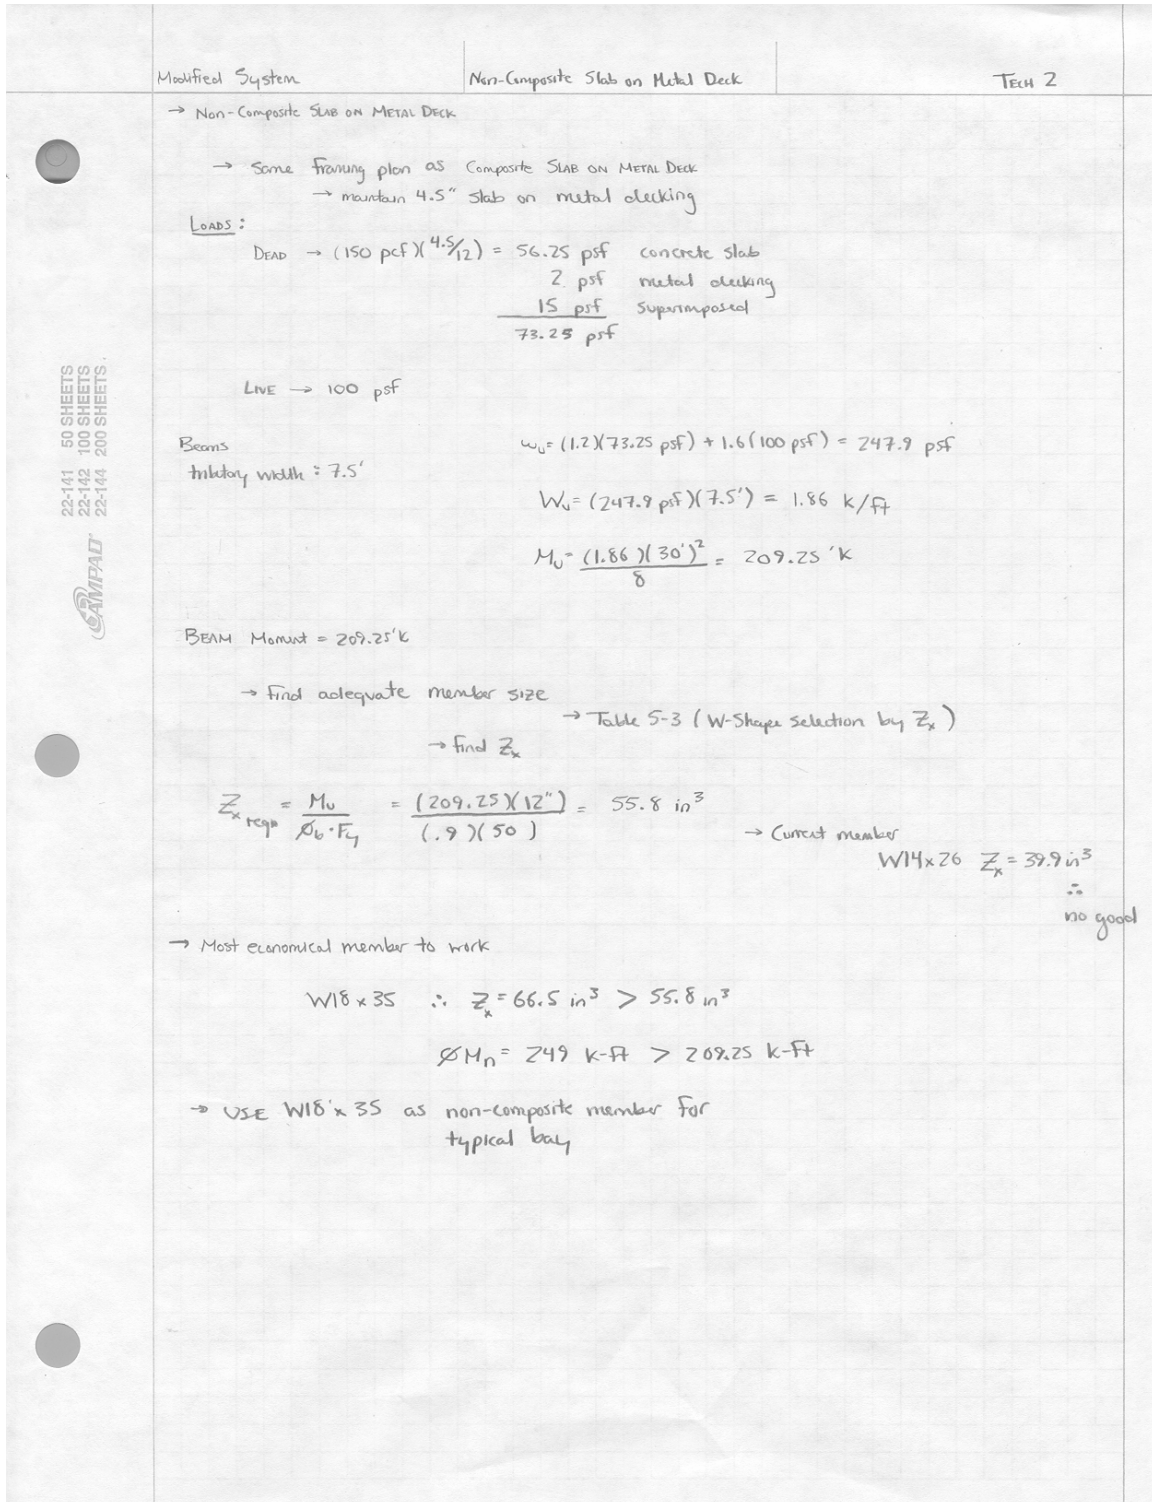 Modified System Non-Composite Slab on Metal Deck TECH 2
→ Non-Composite SLAB ON METAL DECK
→ Same framing plan as Composite SLAB ON METAL DECK
→ maintain 4.5" slab on metal decking
LOADS:
DEAD → (150 pcf)(4.5/12) = 56.25 psf concrete slab
2 psf metal decking
15 psf superimposed
73.25 psf
LIVE → 100 psf
Beams
tributary width: 7.5'
wu = (1.2)(73.25 psf) + 1.6(100 psf) = 247.9 psf
Wu = (247.9 psf)(7.5') = 1.86 k/ft
Mu = (1.86)(30')² / 8 = 209.25 'k
BEAM Moment = 209.25'k
→ find adequate member size
→ Table 5-3 (W-Shape selection by Zx)
→ find Zx
Zx reqD = Mu / Øb·Fy = (209.25)(12") / (.9)(50) = 55.8 in³
→ Current member
W14x26 Zx = 39.9 in³
∴
no good
→ Most economical member to work
W18x35 ∴ Zx = 66.5 in³ > 55.8 in³
ØMn = 249 k-ft > 209.25 k-ft
→ USE W18x35 as non-composite member for
typical bay
22-141 50 SHEETS
22-142 100 SHEETS
22-144 200 SHEETS
AMPAD